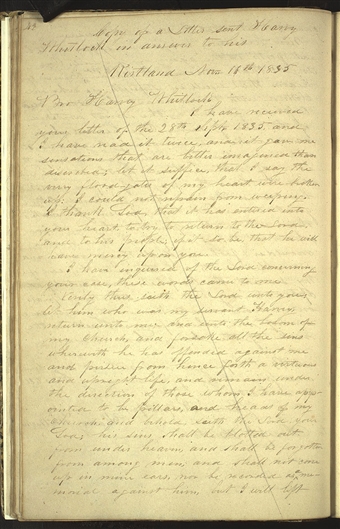 Copy of a Letter sent Harvy
Whitlock in answer to his
Kirtland Nov. 16th 1835
Bro Harvy Whitlock
I have received
your letter of the 28th Sept. 1835. and
I have read it twice, and it gave me
sensations that are better imagined than
discribed; let it suffice, that I say, the
very flood-gates of my heart were broken
up: I could not refrain from weeping.
I thank God, that it has entered into
your heart, to try to return to the Lord
and to his people, if it so be, that he will
have mercy upon you.
I have inquired of the Lord concerning
your case, these words came to me
Verily thus, saith the Lord unto you
let him who was my servant Harvy
return unto me and unto the bosom of
my Church, and forsake all the sins
wherewith he has offended against me
and persue from hence forth a virtuous
and upright life, and remain under
the direction of those whom I have app-
ointed to be pillars, and heads of my
Church, and behold, saith the Lord your
God, his sins shall be blotted out
from under heaven, and shall be forgotten
from among men, and shall not come
up in mine ears, nor be recorded as me-
morial against him, but I will lift